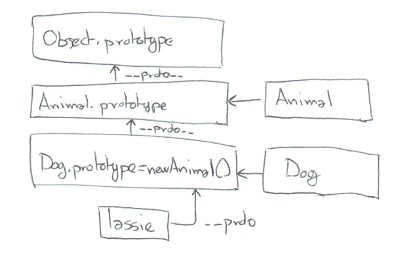 Object.prototype
--proto--
Animal.prototype
Animal
--proto--
Dog.prototype=newAnimal()
Dog
lassie
--proto